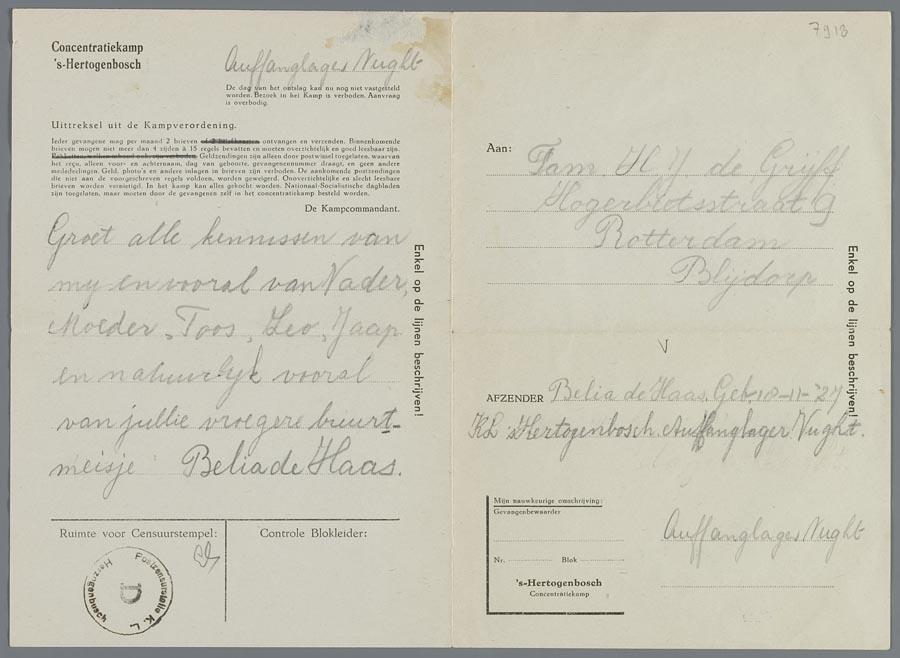 7913
Concentratiekamp
's-Hertogenbosch
Auffanglager Vught
De dag van het ontslag kan nu nog niet vastgesteld
worden. Bezoek in het Kamp is verboden. Aanvraag
is overbodig.
Uittreksel uit de Kampverordening.
Ieder gevangene mag per maand 2 brieven ontvangen en verzenden. Binnenkomende
brieven mogen niet meer dan 4 zijden à 15 regels bevatten en moeten overzichtelijk en goed leesbaar zijn.
Pakketten, welken inhoud ook, zijn verboden. Geldzendingen zijn alleen door postwissel toegelaten, waarvan
het reçu, alleen voor- en achternaam, dag van geboorte, gevangenennummer draagt, en geen andere
mededeelingen. Geld, photo's en andere inlagen in brieven zijn verboden. De aankomende postzendingen
die niet aan de voorgeschreven regels voldoen, worden geweigerd. Onoverzichtelijke en slecht leesbare
brieven worden vernietigd. In het kamp kan alles gekocht worden. Nationaal-Socialistische dagbladen
zijn toegelaten, maar moeten door de gevangenen zelf in het concentratiekamp besteld worden.
De Kampcommandant.
Groet alle kennissen van
my en vooral van Vader,
Moeder, Toos, Leo, Jaap
en natuurlyk vooral
van jullie vroegere buurt-
meisje Belia de Haas.
Enkel op de lijnen beschrijven!
Ruimte voor Censuurstempel:
Controle Blokleider:
Postzensurstelle K. L.
Herzogenbusch
D
Aan:
Fam. H. J de Grijff
Hogerbeetsstraat 9
Rotterdam
Blijdorp
Enkel op de lijnen beschrijven!
V
AFZENDER Belia de Haas. Geb. 18-11-'27
KL 's Hertogenbosch. Auffanglager. Vught.
Mijn nauwkeurige omschrijving:
Gevangenbewaarder
Nr. Blok
's-Hertogenbosch
Concentratiekamp
Auffanglager Vught